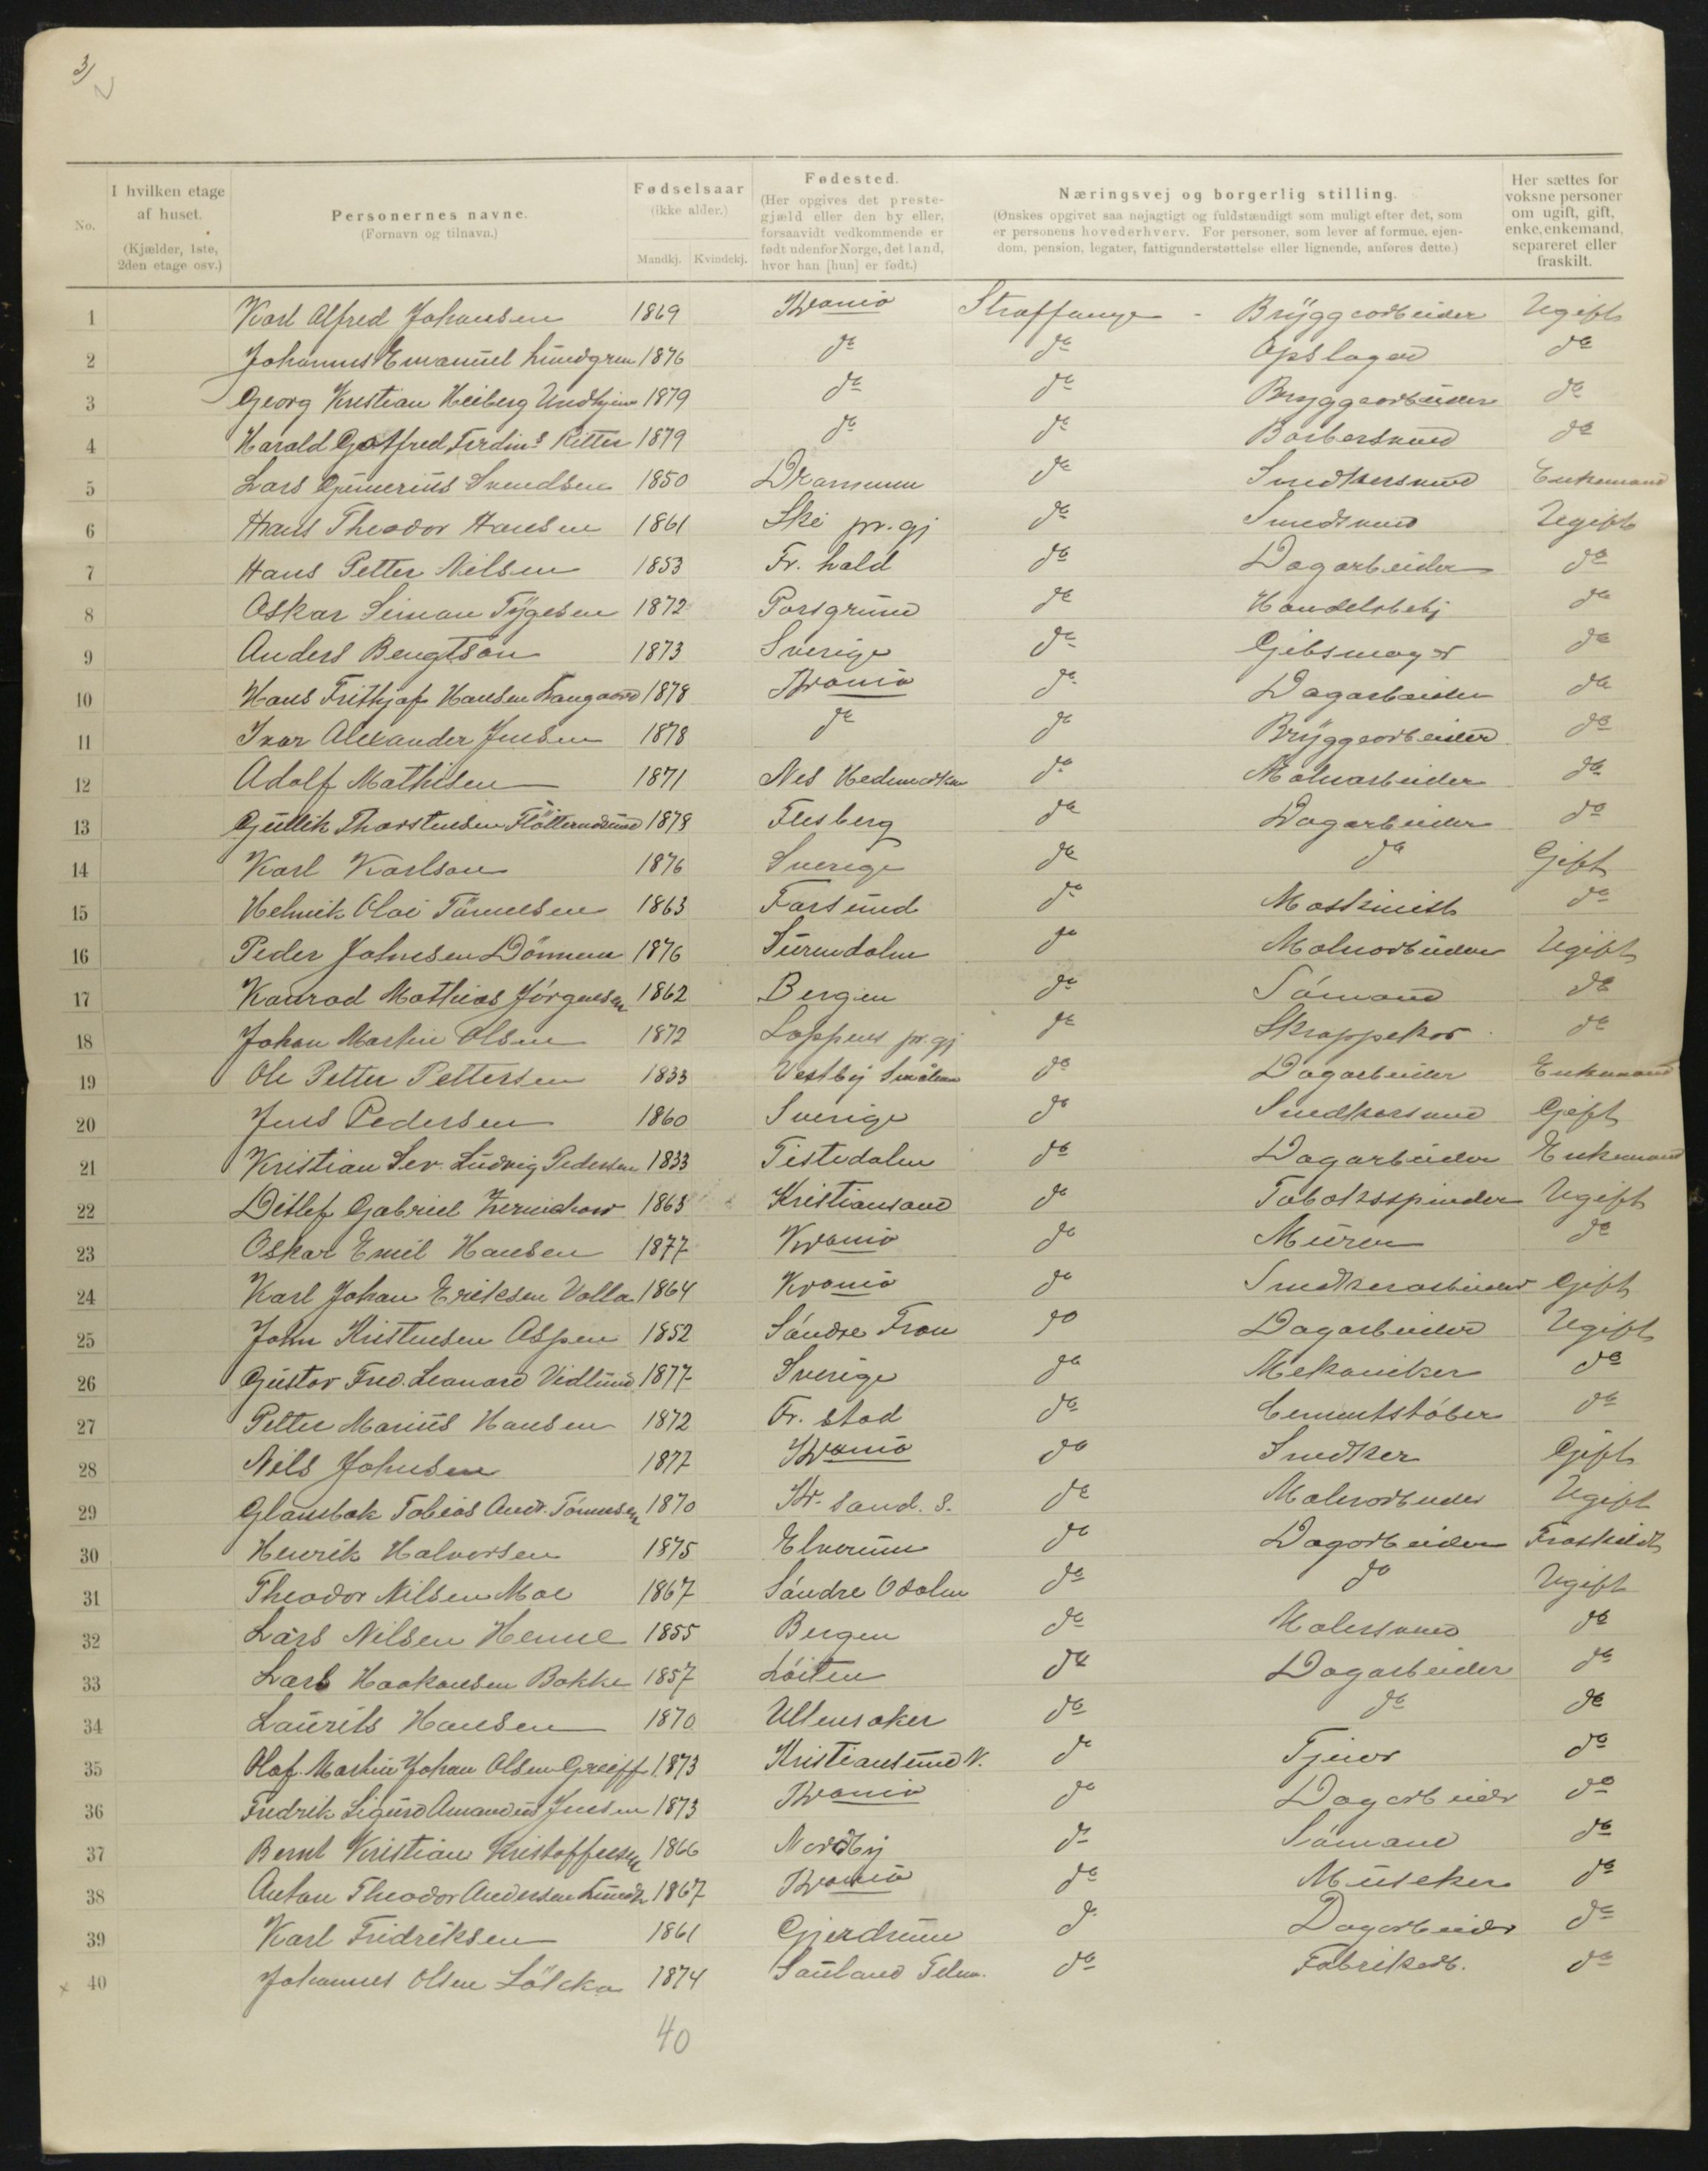 3/
No.
I hvilken etage af huset. (Kjælder, 1ste, 2den etage osv.)
Personernes navne. (Fornavn og tilnavn.)
Fødselsaar (ikke alder.) Mandkj. Kvindekj.
Fødested. (Her opgives det prestegjæld eller den by eller, forsaavidt vedkommende er født udenfor Norge, det land, hvor han [hun] er født.)
Næringsvej og borgerlig stilling. (Ønskes opgivet saa nøjagtigt og fuldstændigt som muligt efter det, som er personens hovederhverv. For personer, som lever af formue, ejendom, pension, legater, fattigunderstøttelse eller lignende, anføres dette.)
Her sættes for voksne personer om ugift, gift, enke, enkemand, separeret eller fraskilt.
1 Karl Alfred Johansen 1869 Krania Straffange - Bryggearbeider Ugift
2 Johannes Emanuel Lundgren 1876 do do Opslager do
3 Georg Kristian Heiberg Undhjem 1879 do do Bryggearbeider do
4 Harald Gotfred Ferdins Ritter 1879 do do Barbersvend do
5 Lars Gunerius Svendsen 1850 Drammen do Snedkersvend Enkemand
6 Hans Theodor Hansen 1861 Ski pr.gj do Smedsvend Ugift
7 Hans Petter Nilsen 1853 Fr. hald do Dagarbeider do
8 Oskar Simon Tygesen 1872 Porsgrund do Handelsbetj do
9 Anders Bengtson 1873 Sverige do Gibsmager do
10 Hans Frithjof Hansen Langaard 1878 Krania do Dagarbeider do
11 Ivar Alexander Jensen 1878 do do Bryggearbeider do
12 Adolf Mathisen 1871 Nes Hedemarken do Malerarbeider do
13 Gullik Thorstensen 1878 Flesberg do Dagarbeider do
14 Karl Karlson 1876 Sverige do do Gift
15 Helmik Olai Tønnesen 1863 Farsund do Maskinist do
16 Peder Johnsen Dønnem 1876 Surendalen do Malerarbeider Ugift
17 Konrad Mathias Jørgensen 1862 Bergen do Sømand do
18 Johan Martin Olsen 1872 Loppens pr.gj do Skrappekar do
19 Ole Petter Pettersen 1833 Vestby Smålene do Dagarbeider Enkemand
20 Jens Pedersen 1860 Sverige do Snedkersvend Gift
21 Kristian Sev. Ludvig Pedersen 1833 Tistedalen do Dagarbeider Enkemand
22 Ditlef Gabriel Zernichow 1863 Kristiansand do Tobaksspinder Ugift
23 Oskar Emil Hansen 1877 Krania do Murer do
24 Karl Johan Eriksen Volla 1864 Krania do Snedkerarbeider Gift
25 John Kristensen Aspen 1852 Søndre Fron do Dagarbeider Ugift
26 Gustav Fred. Leonard Vidlund 1877 Sverige do Mekaniker do
27 Petter Marius Hansen 1872 Fr. stad do Cementstøber do
28 Nils Johnsen 1877 Krania do Snedker Gift
29 Tobias Andr. Tønnesen 1870 Kr. sand. S. do Malerarbeider Ugift
30 Henrik Halvorsen 1875 Elverum do Dagarbeider Fraskildt
31 Theodor Nilsen Moe 1867 Søndre Odalen do do Ugift
32 Lars Nilsen Henne 1855 Bergen do Malersvend do
33 Lars Haakonsen Bakke 1857 Løiten do Dagarbeider do
34 Laurits Hansen 1870 Ullensaker do do do
35 Olaf Martin Johan Olsen Greiff 1873 Kristiansund N. do Tjener do
36 Fredrik Sigurd Amandus Jensen 1873 Krania do Dagarbeider do
37 Bernt Kristian Kristoffersen 1866 Nordby do Sømand do
38 Anton Theodor Andersen Lunde 1867 Krania do Musiker do
39 Karl Fridriksen 1861 Gjerdrum do Dagarbeider do
x 40 Johannes Olsen 1874 Sauland Telem. do Fabrikarb. do
40